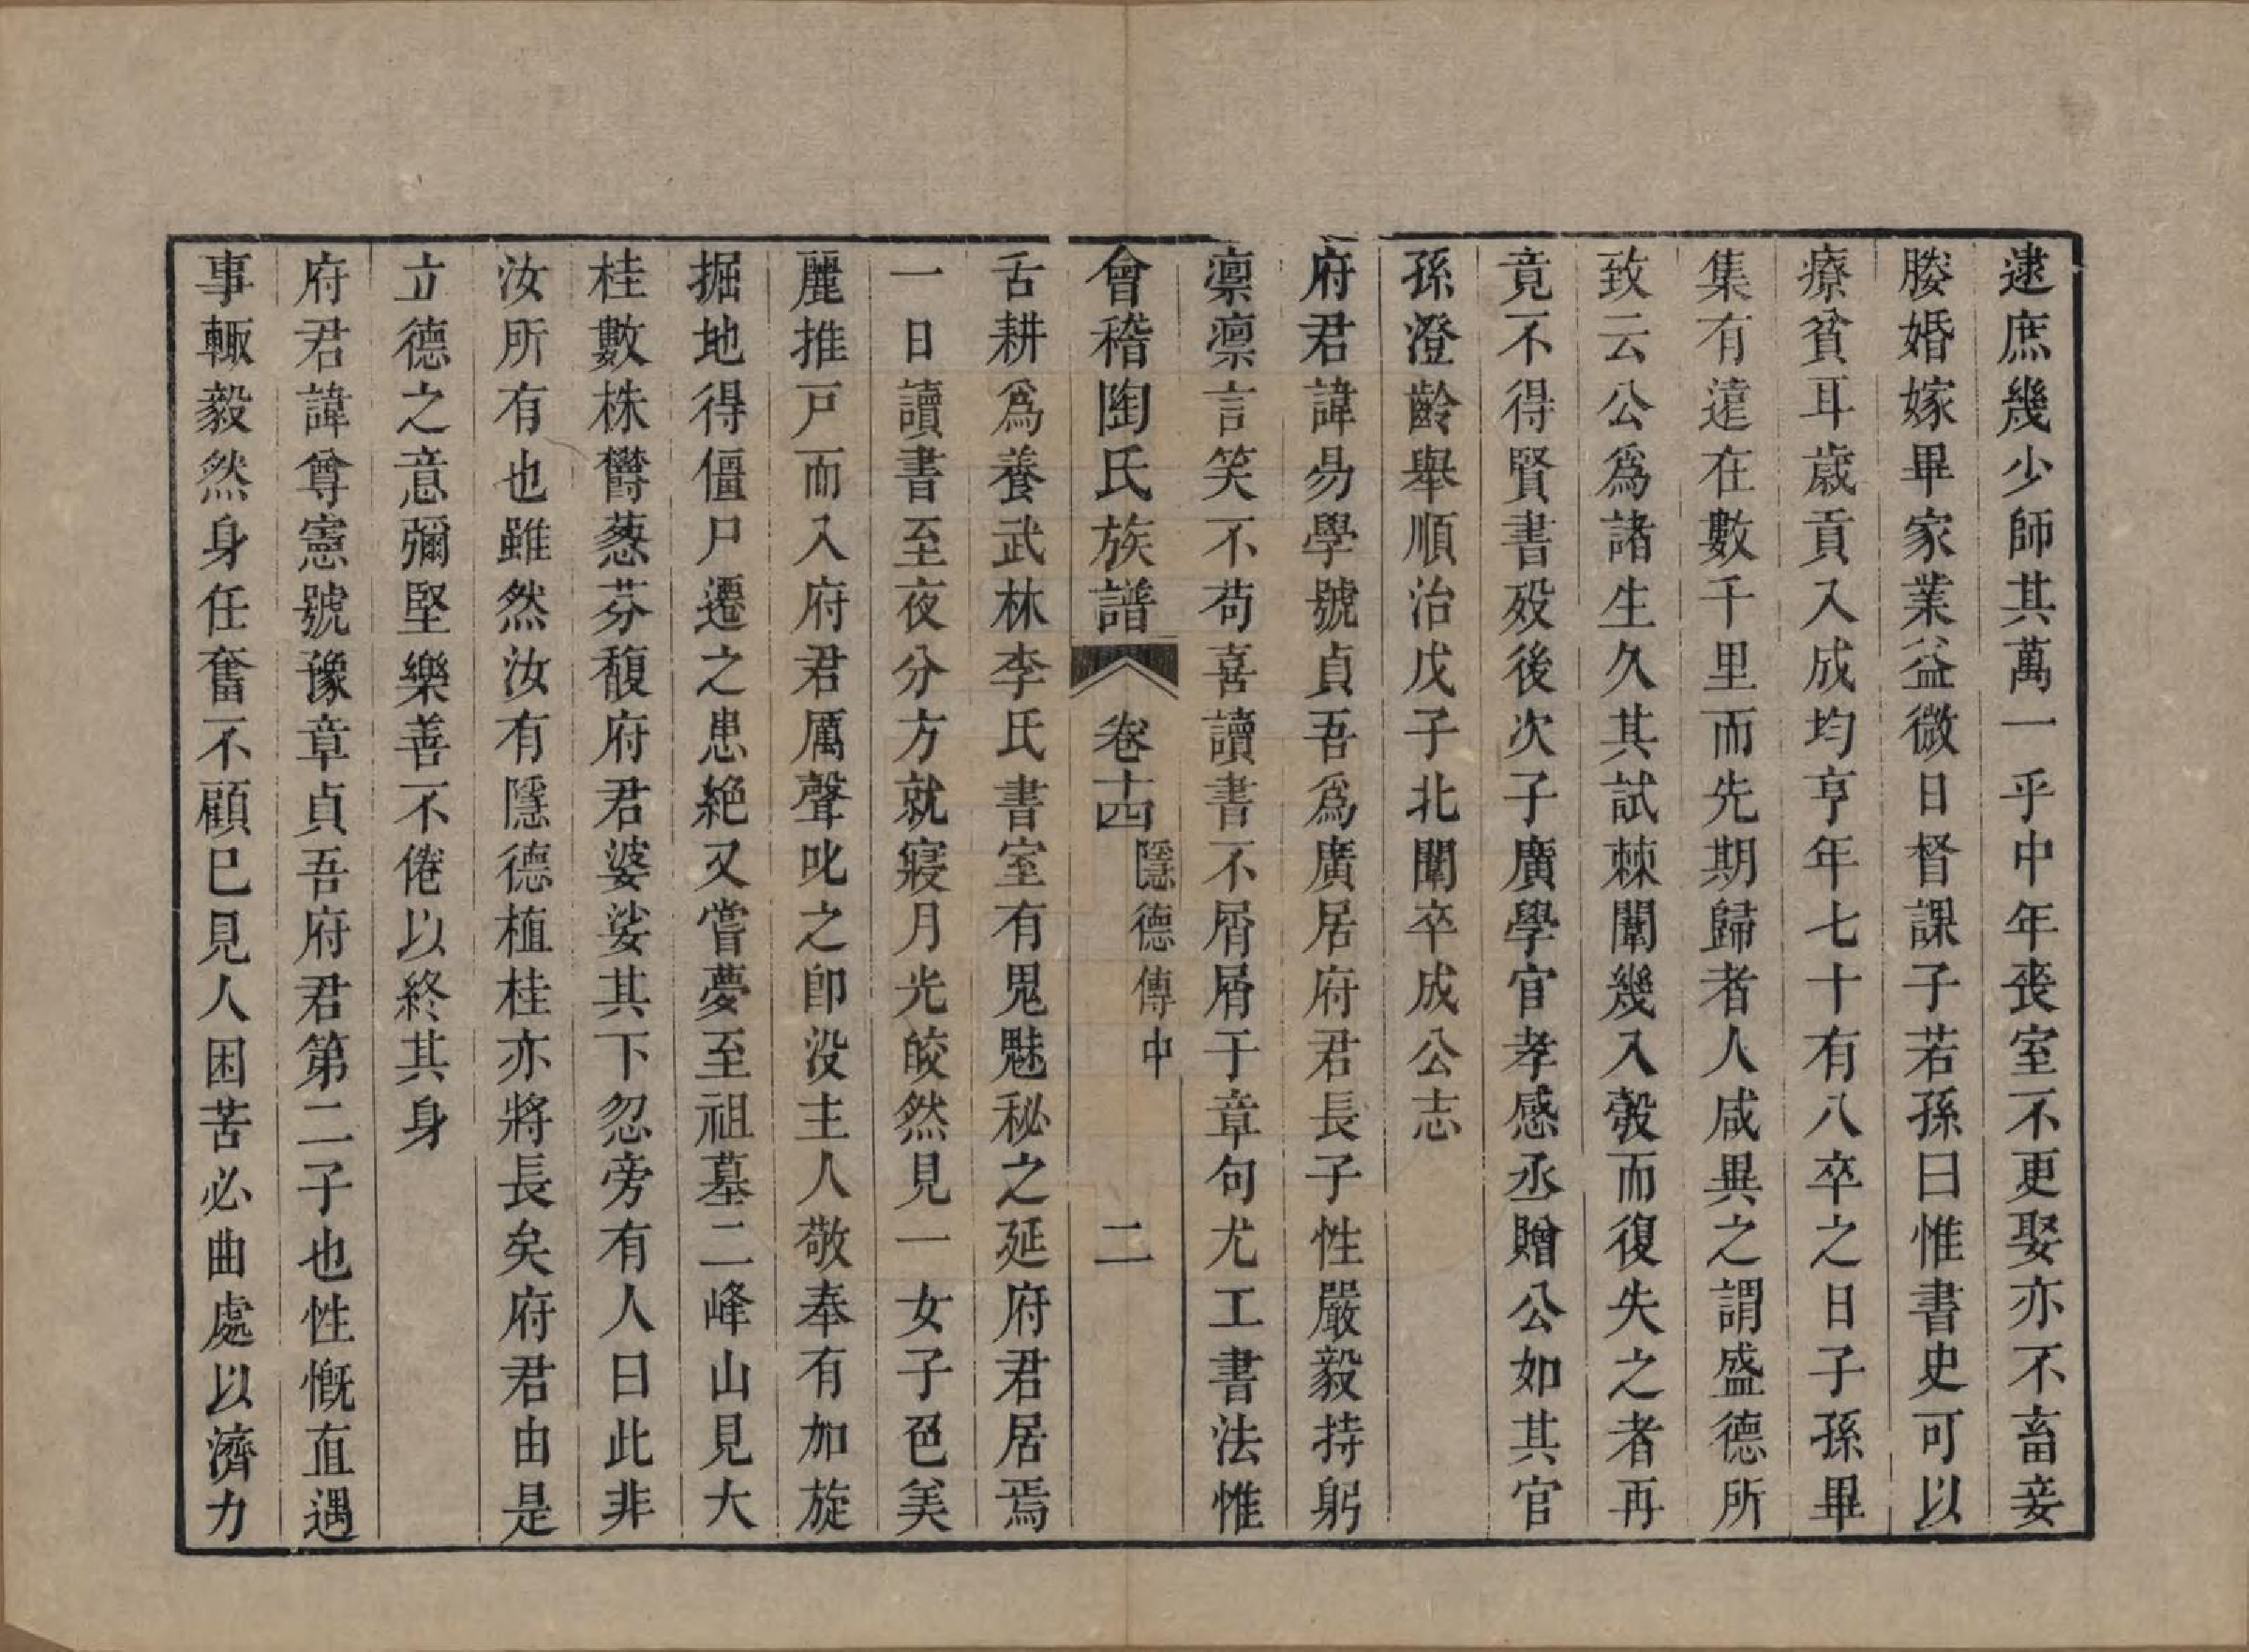 逮庶幾少師其萬一乎中年喪室不更娶亦不畜妾
媵婚嫁畢家業益微日督課子若孫曰惟書史可以
療貧耳歲貢入成均亨年七十有八卒之日子孫畢
集有遠在數千里而先期歸者人咸異之謂盛德所
致云公爲諸生久其試棘闈幾入彀而復失之者再
竟不得賢書歿後次子廣學官孝感丞贈公如其官
孫澄齡舉順治戊子北闈卒成公志
府君諱易學號貞吾爲廣居府君長子性嚴毅持躬
凛凛言笑不苟喜讀書不屑屑于章句尤工書法惟
會稽陶氏族譜 卷十四 隱德傳中 二
舌耕爲養武林李氏書室有鬼魅秘之延府君居焉
一日讀書至夜分方就寢月光皎然見一女子色美
麗推戸而入府君厲聲叱之卽没主人敬奉有加旋
掘地得僵尸遷之患絶又嘗夢至祖墓二峰山見大
桂數株欝葱芬馥府君婆娑其下忽旁有人曰此非
汝所有也雖然汝有隱德植桂亦將長矣府君由是
立德之意彌堅樂善不倦以終其身
府君諱尊憲號豫章貞吾府君第二子也性慨直遇
事輙毅然身任奮不顧已見人困苦必曲處以濟力